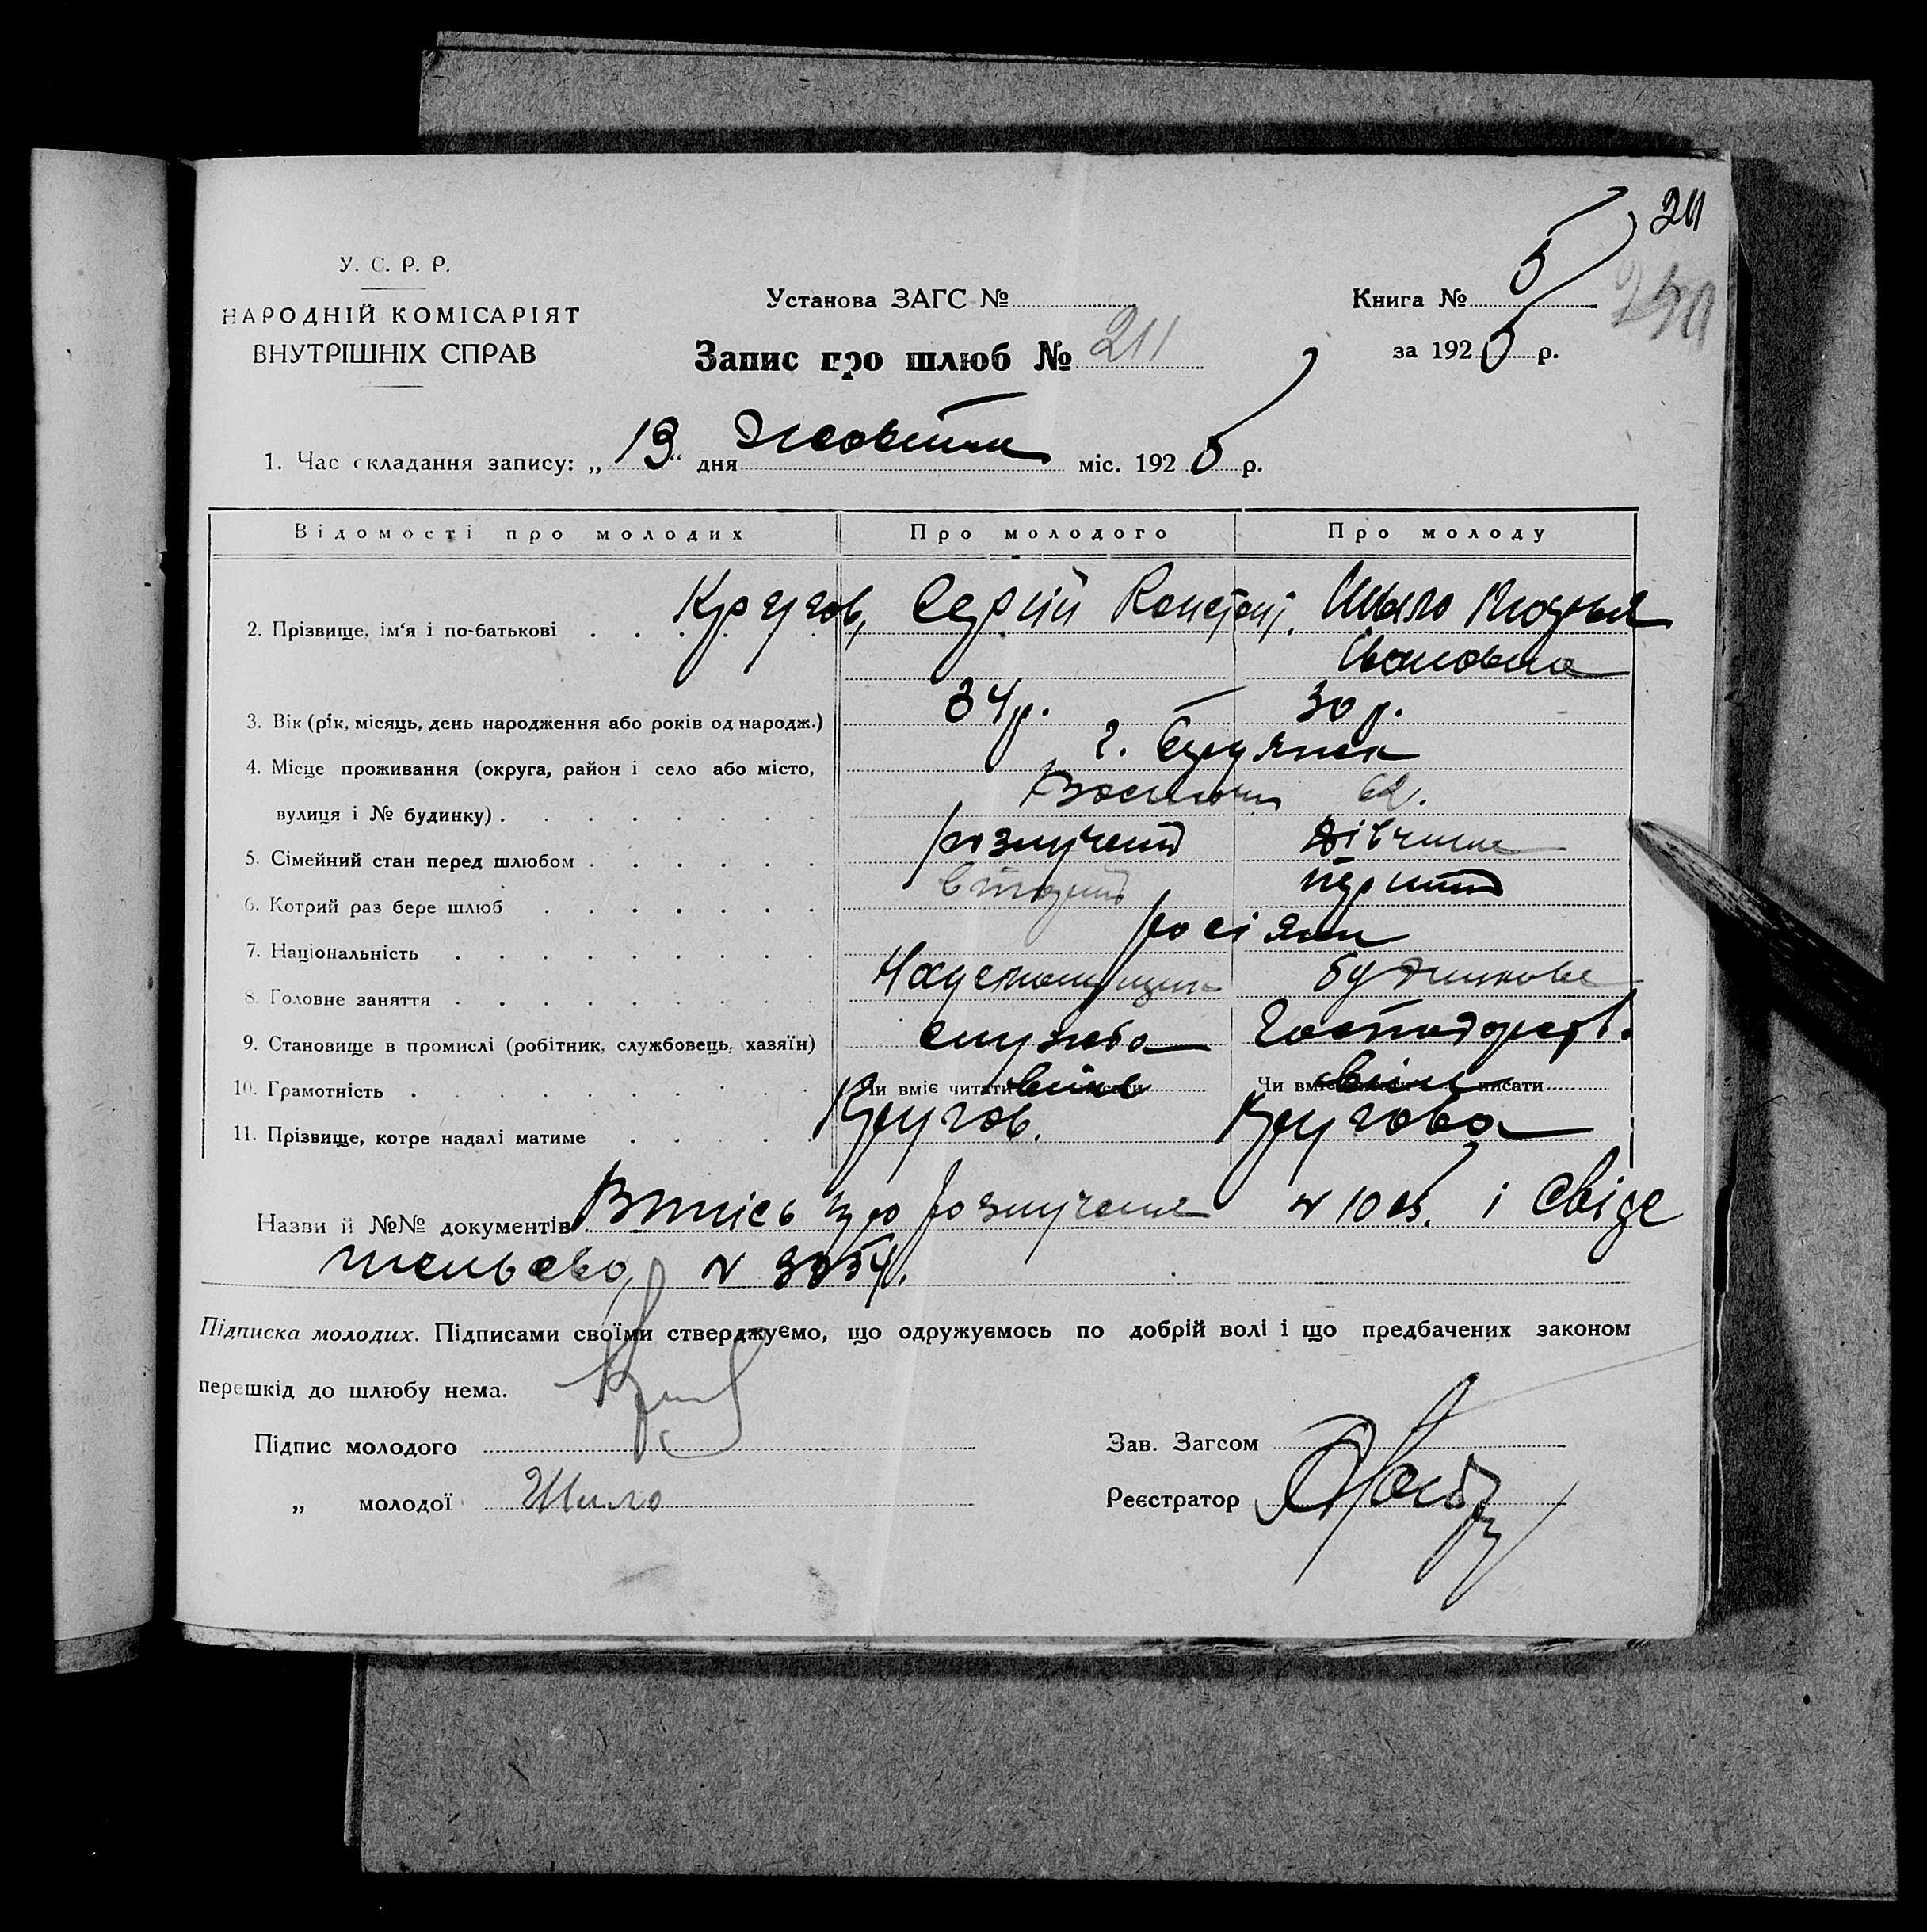 211
У. С. Р. Р.
НАРОДНІЙ КОМІСАРІЯТ
ВНУТРІШНІХ СПРАВ
Установа ЗАГС №
Книга № 5
Запис про шлюб № 211
за 1925 р.
1. Час складання запису: „19“ дня Жовтня міс. 1925 р.
Відомості про молодих Про молодого Про молоду
2. Прізвище, ім'я і по-батькові Кругов, Сергій Констант. Шыло
Ивановна
3. Вік (рік, місяць, день народження або років од народж.) 34 р. 30 р.
4. Місце проживання (округа, район і село або місто, г. Бердянск
вулиця і № будинку) 62.
5. Сімейний стан перед шлюбом розлучений дівчина
6. Котрий раз бере шлюб вторий перший
7. Національність росіяни
8. Головне заняття будинкове
9. Становище в промислі (робітник, службовець, хазяїн) служба господарств.
10. Грамотність Чи вміє читати вміє писати Чи вміє вміє писати
11. Прізвище, котре надалі матиме Кругов. Кругова
Назви й №№ документів Випись про розлучення № 1005. і свіде
тельсво № 3054.
Підписка молодих. Підписами своїми стверджуємо, що одружуємось по добрій волі і що предбачених законом
перешкід до шлюбу нема.
Підпис молодого
Зав. Загсом
„ молодої Шило
Реєстратор